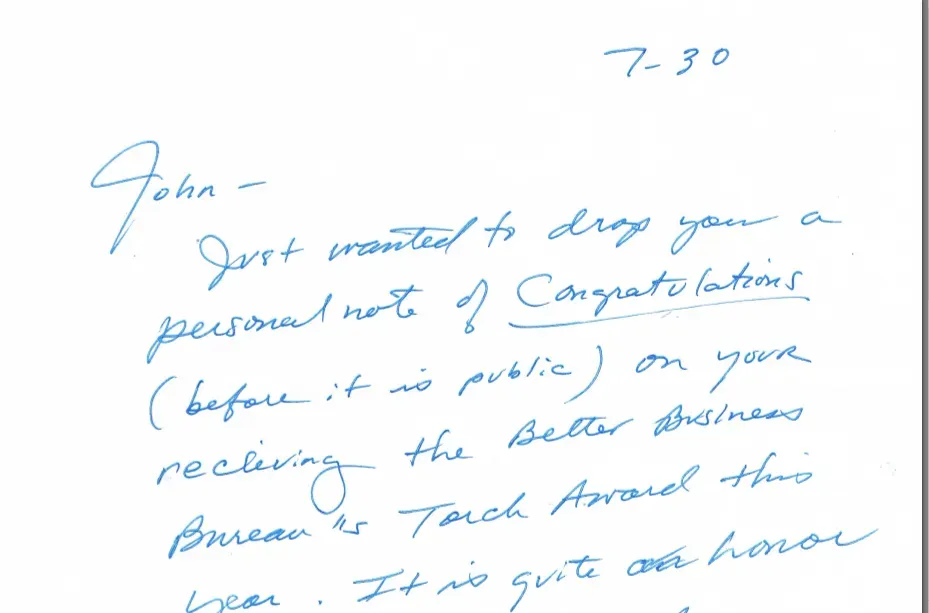 7-30
John -
Just wanted to drop you a
personal note of Congratulations
(before it is public) on your
recieving the Better Business
Bureau "s Torch Award this
year. It is quite an honor